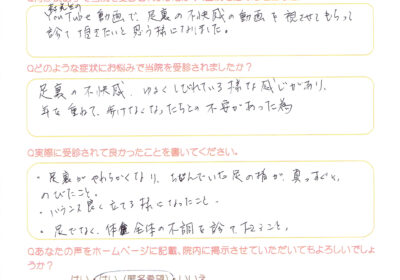 YouTube動画で、足裏の不快感の動画を視させてもらって
診て頂きたいと思う様になりました。
Qどのような症状にお悩みで当院を受診されましたか?
足裏の不快感、ゆるくしびれている様な感じがあり、
年を重ねて、歩けなくなったらとの不安があった為
Q実際に受診されて良かったことを書いてください。
・足裏がやわらかくなり、お悩んでいた足の指が、真っすぐに、
のびたこと。
・バランス良く立てる様になったこと。
・足でなく、体全体の不調を診て下さること。
Qあなたの声をホームページに記載、院内に掲示させていただいてもよろしいでしょ
うか?
はい・はい(匿名希望)・いいえ